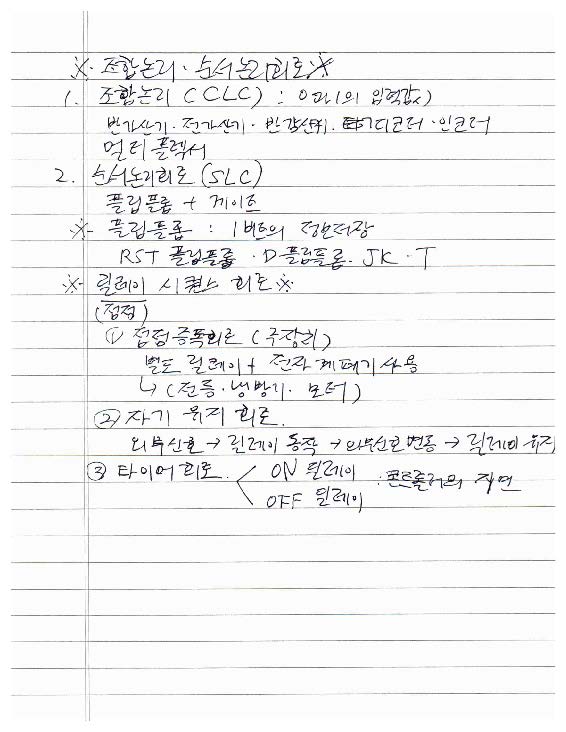 ※ 조합논리·순서논리회로 ※
1. 조합논리 (CLC) : 0과1의 입력값)
반가산기·전가산기·반감산기·디코더·인코더
멀티플렉서
2. 순서논리회로 (SLC)
플립플롭 + 게이트
※ 플립플롭 : 1비트의 정보저장
RST 플립플롭 · D플립플롭· JK · T
※ 릴레이 시퀀스 회로 ※
(접점)
① 접점증폭회로 (구장치)
별도 릴레이 + 전자개폐기 사용
↳ (전등·냉방기· 모터)
② 자기 유지 회로
외부신호 → 릴레이 동작 → 외부신호변동 → 릴레이 유지
③ 타이머회로 < ON 딜레이
OFF 딜레이 : 콘트롤러의 지연